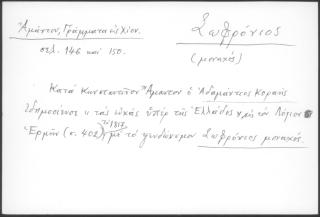 Ἀμάντου, Γράμματα εἰς Χίον.
σελ. 146 καὶ 150.
Σωφρόνιος
(μοναχός)
Κατὰ Κωνσταντῖνον Ἄμαντον ὁ Ἀδαμάντιος Κοραῆς
ἐδημοσίευσε τὰς εὐχὰς ὑπὲρ τῆς Ἑλλάδος εἰς τὸν Λόγιον
Ἑρμῆν (σ. 402) τῷ 1817 μὲ τὸ ψευδώνυμον Σωφρόνιος μοναχός.